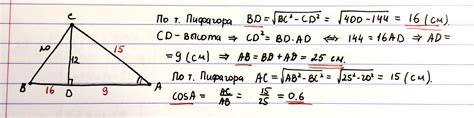 C
20
15
12
B
16
D
9
A
По т. Пифагора BD = √BC² - CD² = √400 - 144 = 16 (см).
CD - высота ⇒ CD² = BD·AD ⇔ 144 = 16AD ⇒ AD =
= 9 (см) ⇒ AB = BD + AD = 25 см.
По т. Пифагора AC = √AB² - BC² = √25² - 20² = 15 (см).
cosA = AC/AB = 15/25 = 0.6